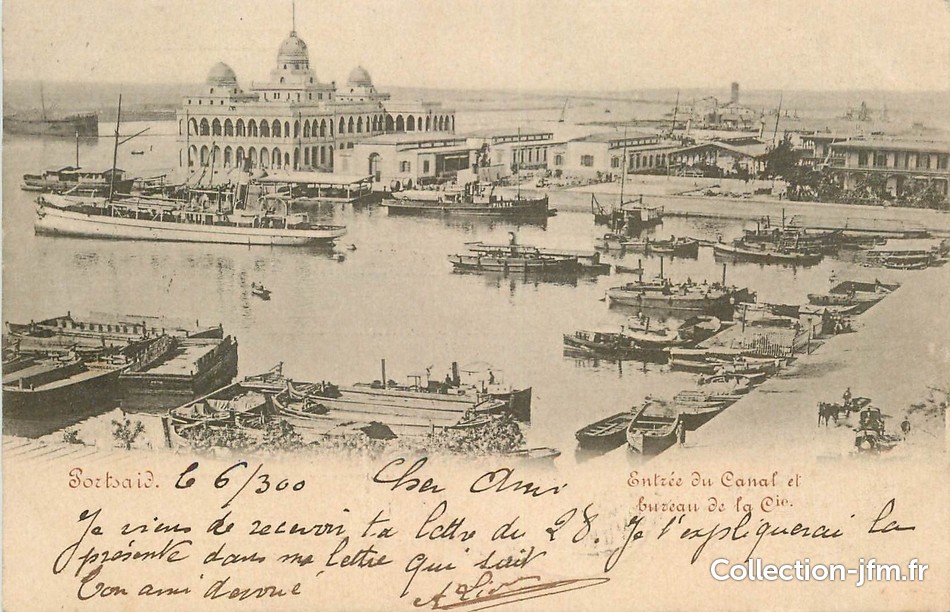 Portsaid. le 6/3 00 Cher Ami
Entrée du Canal et
bureau de la Cie.
Je viens de recevoir ta lettre du 28. Je t'expliquerai la
présente dans ma lettre qui suit
Ton ami dévoué
Collection-jfm.fr